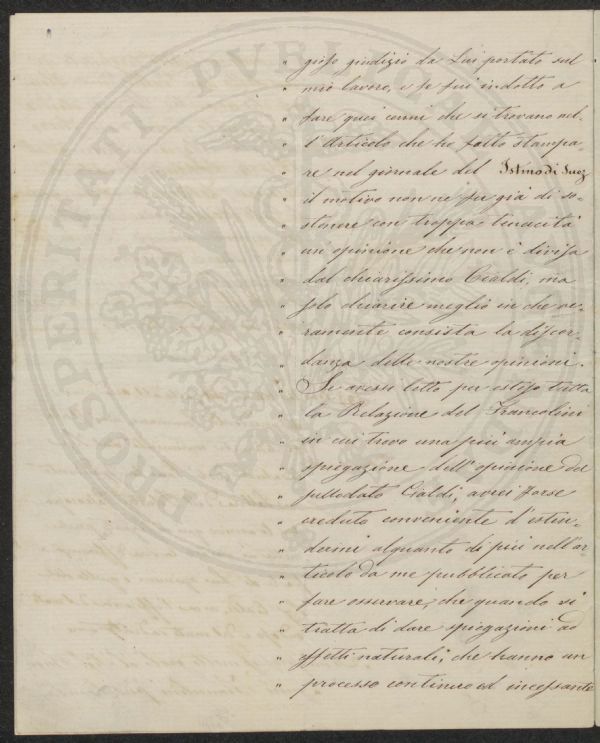 " gioso giudizio da Lui portato sul
" mio lavoro, e se fui indotto a
" fare quei cenni che si trovano nel-
" l'Articolo che ho fatto stampa-
" re nel giornale del Istmo di Suez
" il motivo non ne fu già di so-
" stenere con troppa tenacità
" un'opinione che non è divisa
" dal chiarissimo Cialdi, ma
" solo chiarire meglio in che ve-
" ramente consista la discor-
" danza delle nostre opinioni.
" Se avessi letto per esteso tutta
" la Relazione del Francolini
" in cui trovo una più ampia
" spiegazione dell'opinione del
" sullodato Cialdi, avrei forse
" creduto conveniente d'esten-
" dermi alquanto di più nell'ar-
" ticolo da me pubblicato per
" fare osservare, che quando si
" tratta di dare spiegazioni ad
" effetti naturali, che hanno un
" processo continuo ed incessante
PROSPERITATI PVBLICAE